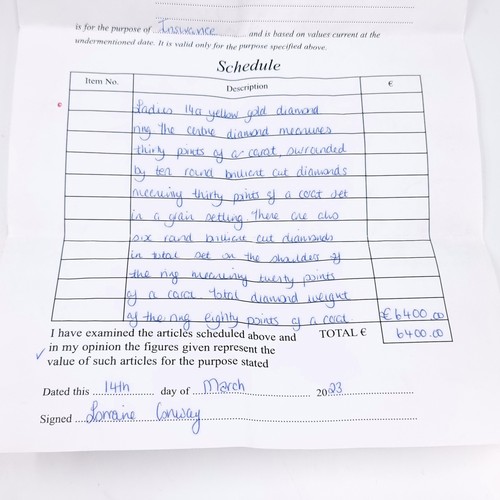 is for the purpose of Insurance and is based on values current at the
undermentioned date. It is valid only for the purpose specified above.
Schedule
Item No. Description €
Ladies 14ct yellow gold diamond
ring the centre diamond measures
thirty points of a carat, surrounded
by ten round brilliant cut diamonds
measuring thirty points of a carat set
in a grain setting. There are also
six round brilliant cut diamonds
in total set on the shoulders of
the ring measuring twenty points
of a carat. Total diamond weight
of the ring eighty points of a carat. €6400.00
I have examined the articles scheduled above and TOTAL € 6400.00
in my opinion the figures given represent the
value of such articles for the purpose stated
Dated this 14th day of March 2023
Signed Lorraine Conway